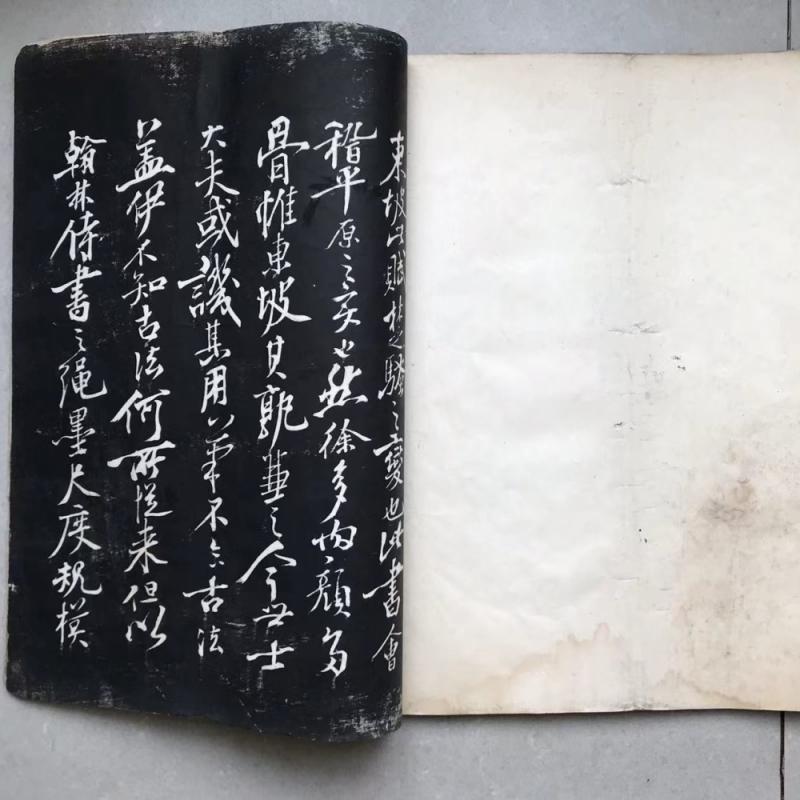 東坡此賦楚騷之變也此書會
稽平原之變也然徐多肉顏多
骨惟東坡其孰兼之今世士
大夫或譏其用筆不合古法
蓋伊不知古法何所從来但以
翰林侍書之繩墨尺度規模